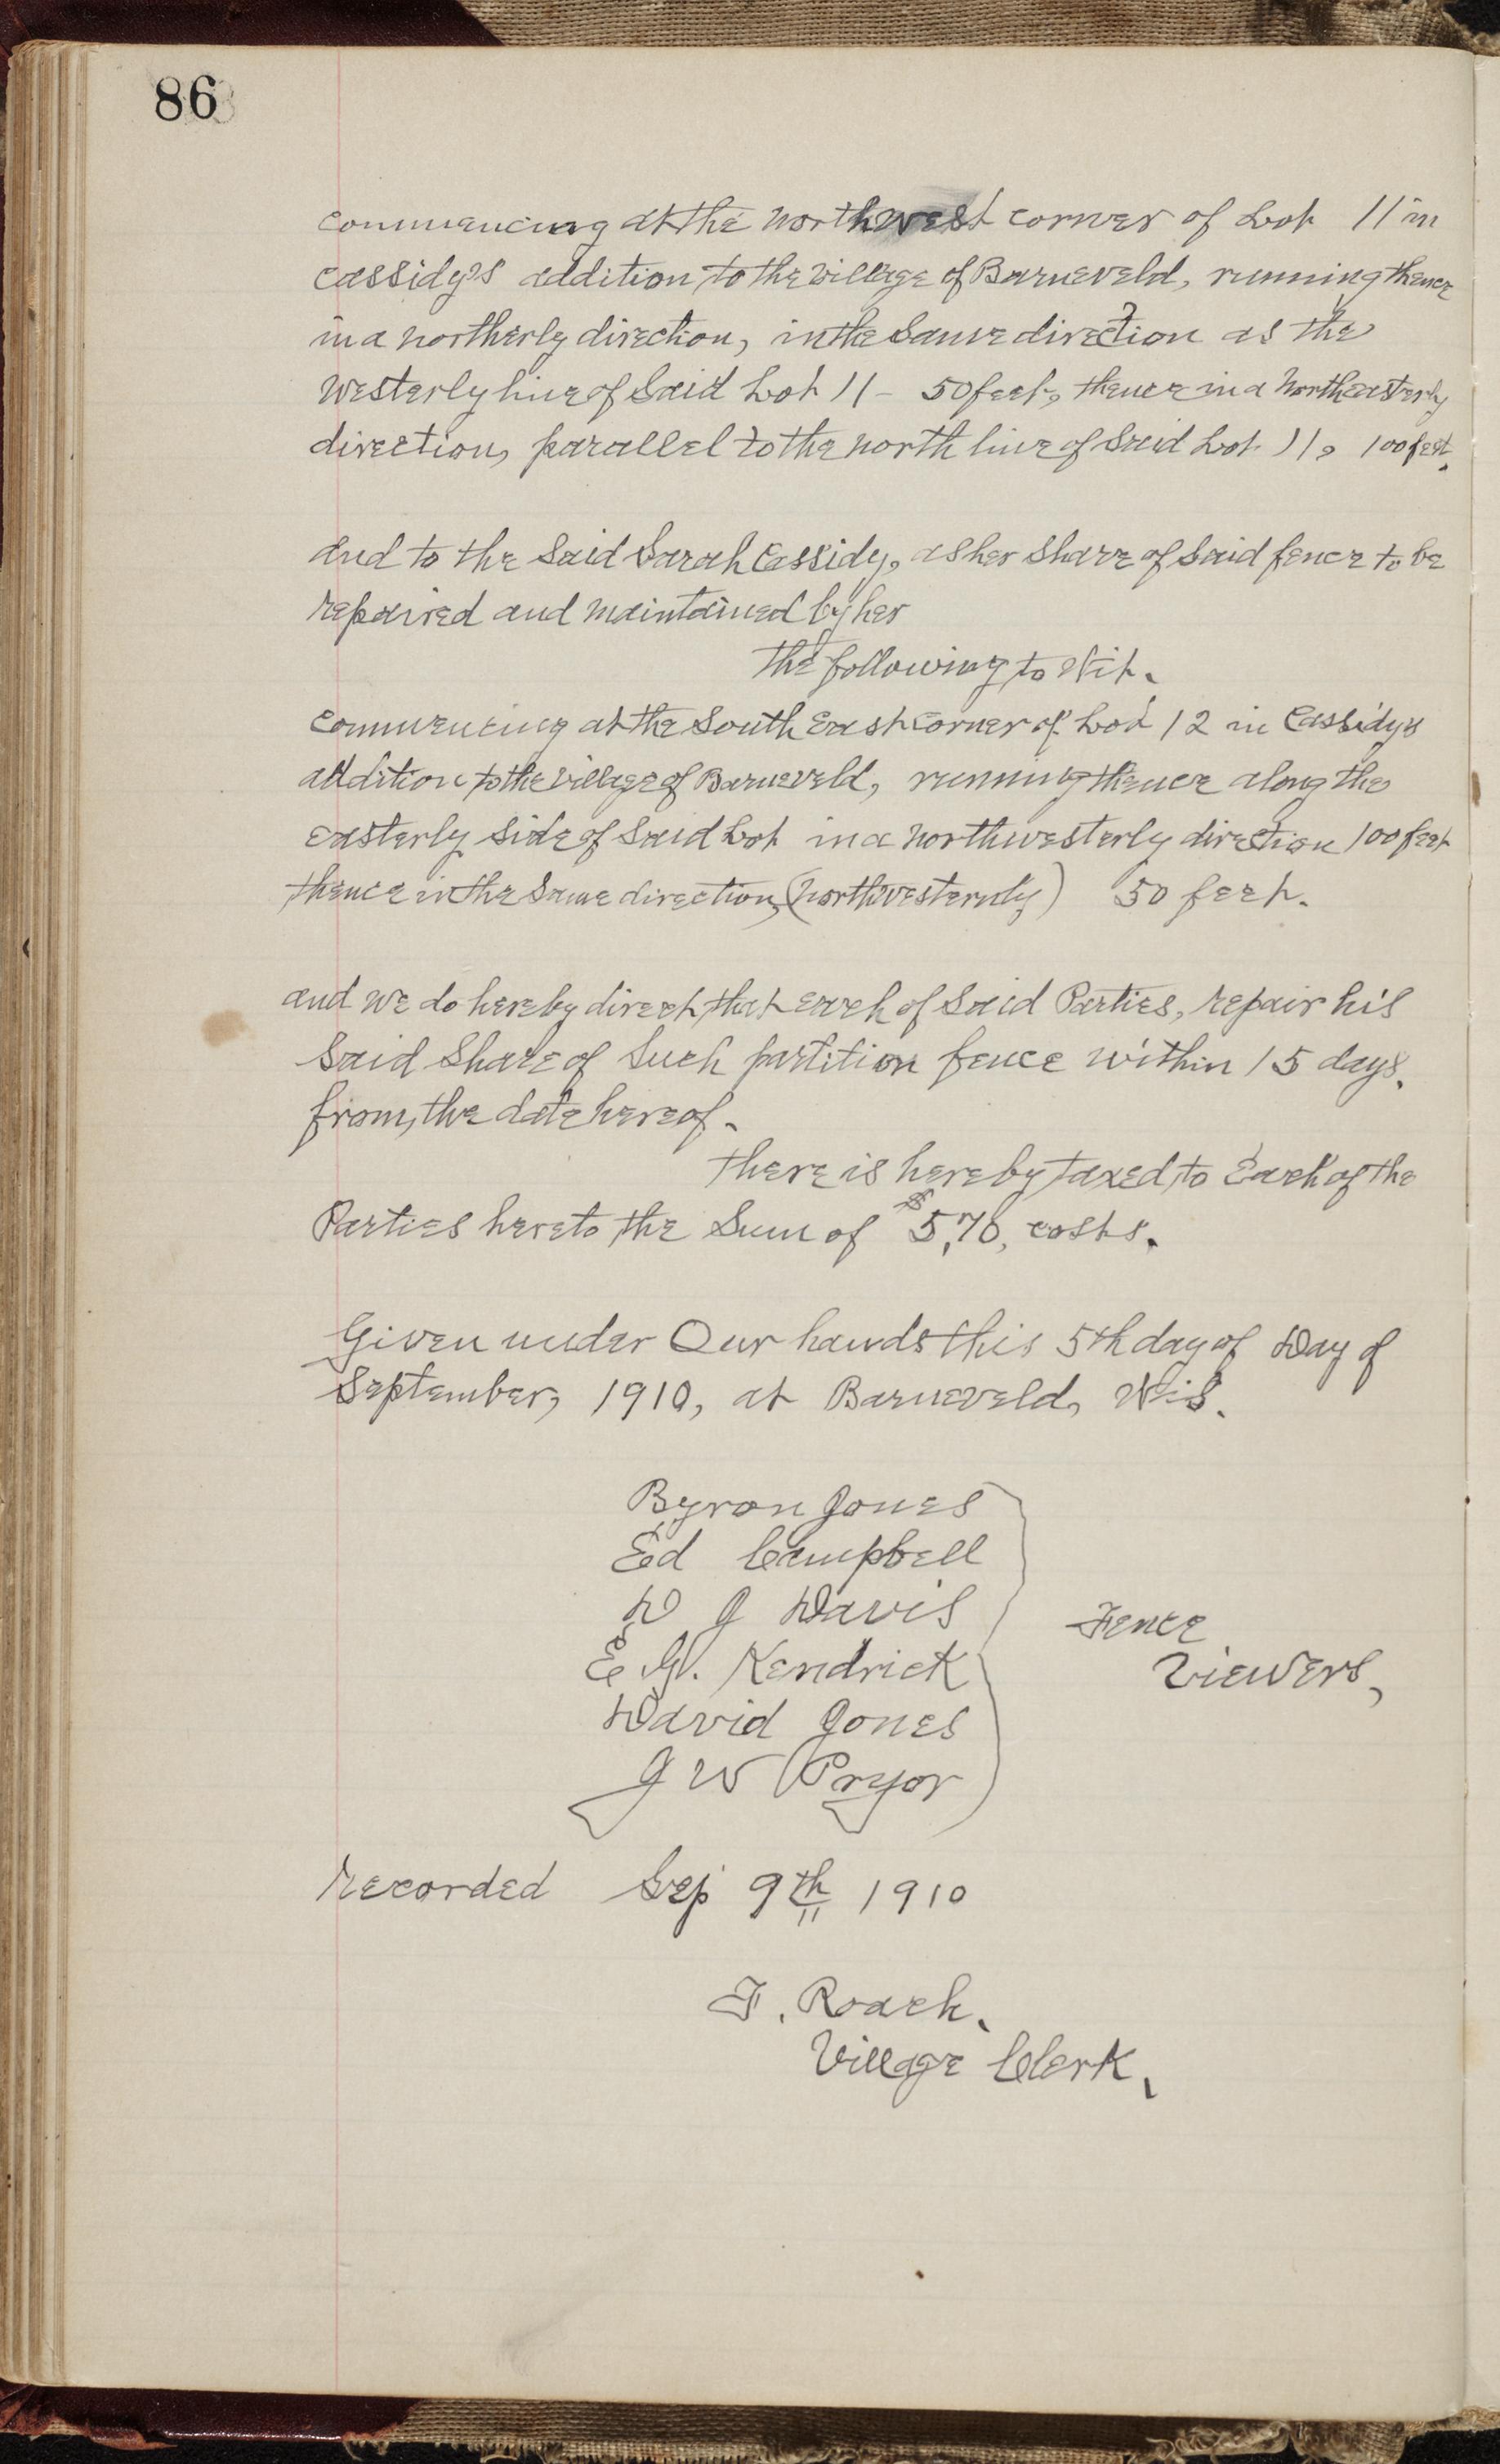 86
commencing at the northwest corner of Lot 11 in
Cassidy's addition to the Village of Barneveld, running thence
in a northerly direction, in the same direction as the
Westerly line of Said Lot 11 - 50 feet, thence in a Northeasterly
direction, parallel to the north line of Said Lot 11, 100 feet.
and to the Said Sarah Cassidy, as her share of Said fence to be
repaired and maintained by her
the following to Wit.
Commencing at the South East Corner of Lot 12 in Cassidys
addition to the Village of Barneveld, running thence along the
easterly side of Said Lot in a northwesterly direction 100 feet
thence in the Same direction, (northwesternly) 50 feet.
and we do hereby direct that each of Said Parties, repair his
Said Share of Such partition fence within 15 days.
from, the date hereof.
there is hereby taxed to Each of the
Parties hereto the Sum of $5,70, costs.
Given under Our hands this 5th day of Day of
September, 1910, at Barneveld, Wis.
Byron Jones
Ed Campbell
D J Davis
E. W. Kendrick
David Jones
J W Pryor
Fence
Viewers,
Recorded Sep 9th 1910
F. Roach.
Village Clerk.